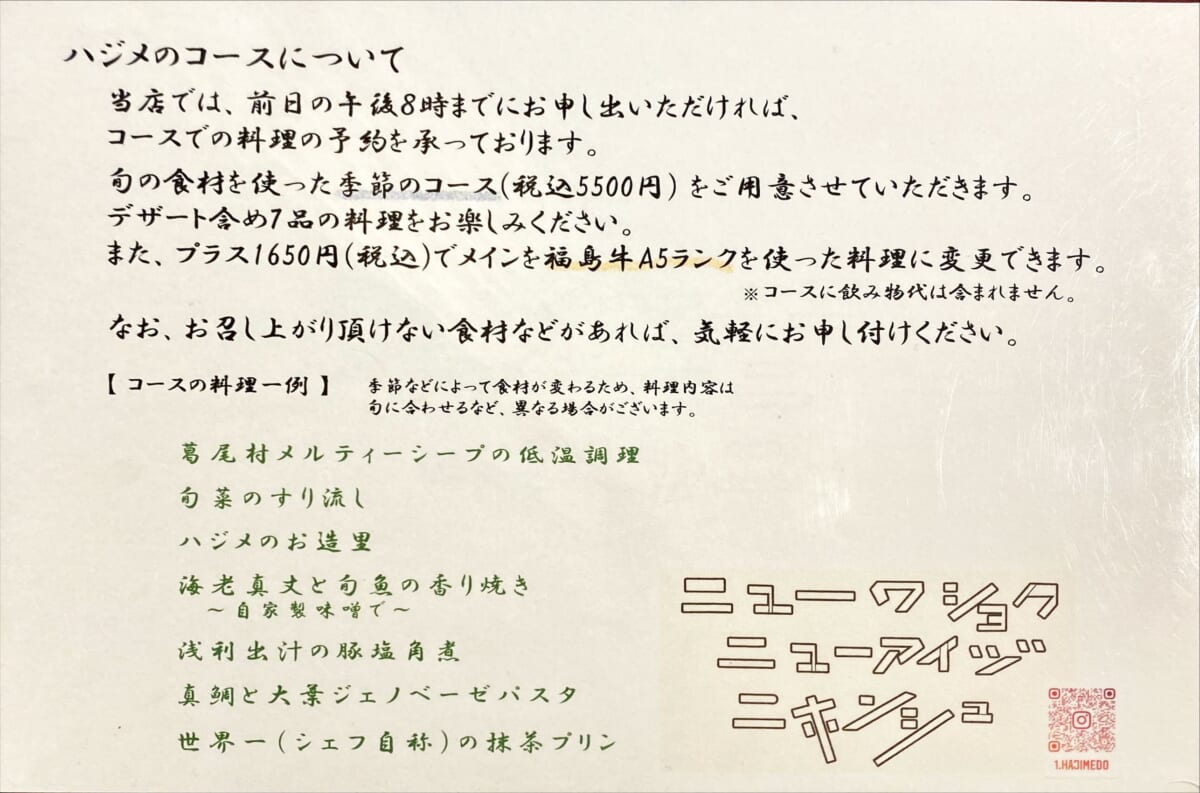 ハジメのコースについて
当店では、前日の午後8時までにお申し出いただければ、
コースでの料理の予約を承っております。
旬の食材を使った季節のコース(税込5500円)をご用意させていただきます。
デザート含め7品の料理をお楽しみください。
また、プラス1650円(税込)でメインを福島牛A5ランクを使った料理に変更できます。
※コースに飲み物代は含まれません。
なお、お召し上がり頂けない食材などがあれば、気軽にお申し付けください。
【コースの料理一例】
季節などによって食材が変わるため、料理内容は
旬に合わせるなど、異なる場合がございます。
葛尾村メルティーシープの低温調理
旬菜のすり流し
ハジメのお造里
海老真丈と旬魚の香り焼き
～自家製味噌で～
浅利出汁の豚塩角煮
真鯛と大葉ジェノベーゼパスタ
世界一(シェフ自称)の抹茶プリン
ニューワショク
ニューアイヅ
ニホンシュ
1.HAJIMEDO